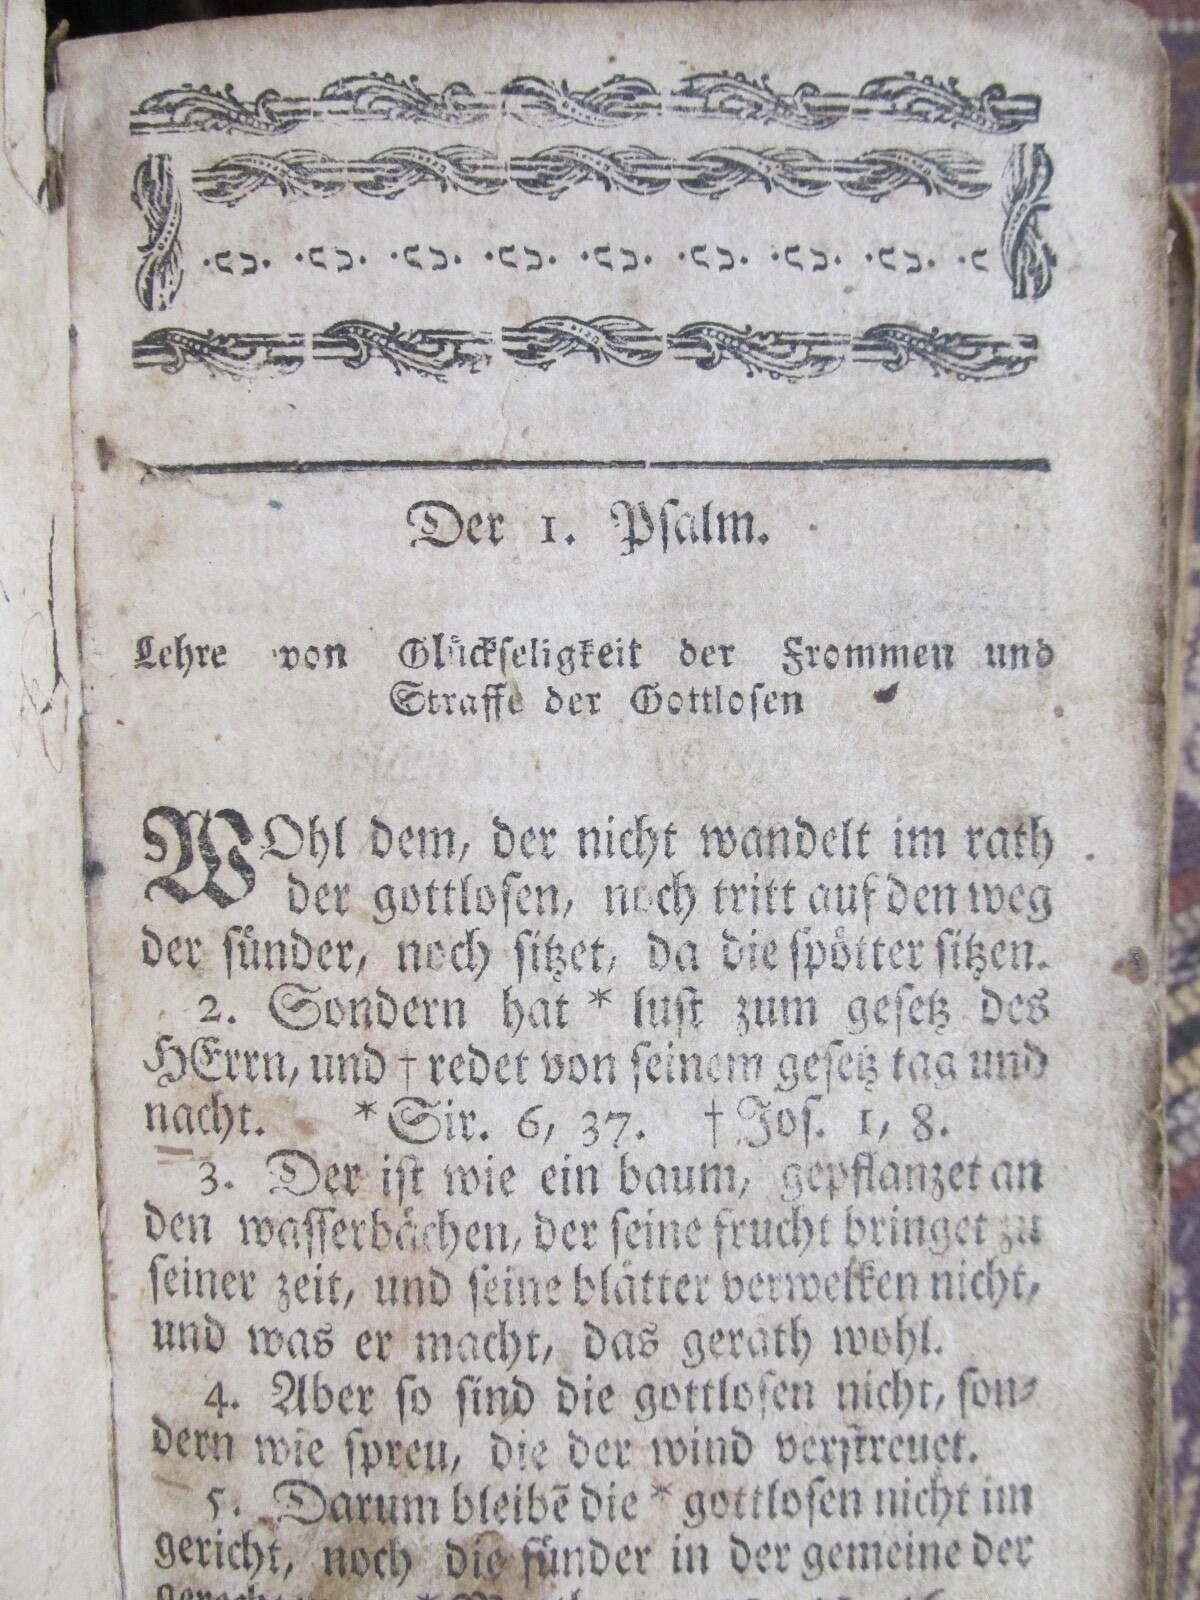 Der 1. Psalm.
Lehre von Glückseligkeit der Frommen und
Straffe der Gottlosen
WOhl dem, der nicht wandelt im rath
der gottlosen, noch tritt auf den weg
der sünder, noch sitzet, da die spötter sitzen.
2. Sondern hat * lust zum gesetz des
HErrn, und † redet von seinem gesetz tag und
nacht. * Sir. 6, 37. † Jos. 1, 8.
3. Der ist wie ein baum, gepflanzet an
den wasserbächen, der seine frucht bringet zu
seiner zeit, und seine blätter verwelken nicht,
und was er macht, das geräth wohl.
4. Aber so sind die gottlosen nicht, son-
dern wie spreu, die der wind verstreuet.
5. Darum bleibē die * gottlosen nicht im
gericht, noch die sünder in der gemeine der